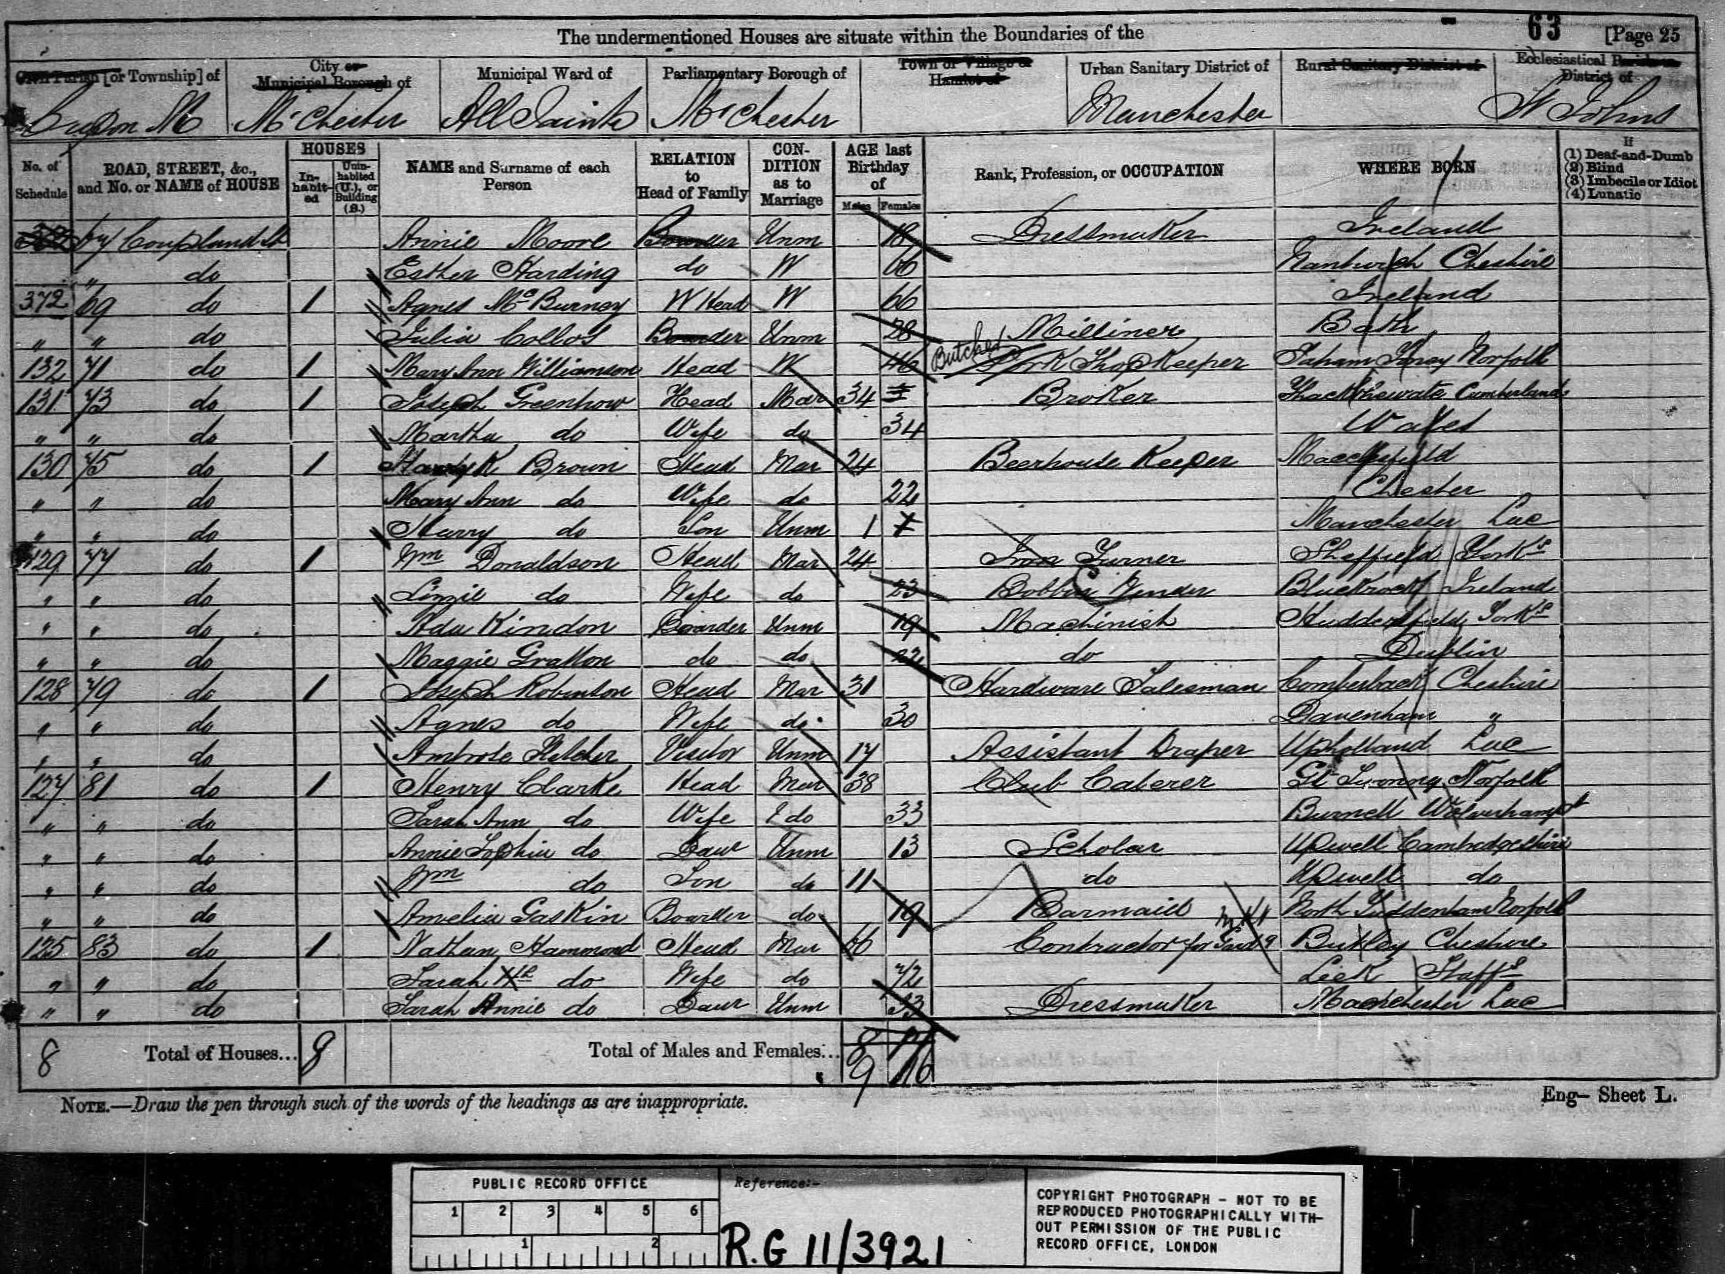 The undermentioned Houses are situate within the Boundaries of the
63 [Page 25
Civil Parish [or Township] of
City or Municipal Borough of
Municipal Ward of
Parliamentary Borough of
Town or Village or Hamlet of
Urban Sanitary District of
Rural Sanitary District of
Ecclesiastical Parish or District of
McChester All Saints McChester Manchester St Johns
No. of Schedule
ROAD, STREET, &c., and No. or NAME of HOUSE
HOUSES
In-habit-ed
Unin-habited (U.), or Building (B.)
NAME and Surname of each Person
RELATION to Head of Family
CON-DITION as to Marriage
AGE last Birthday of
Males Females
Rank, Profession, or OCCUPATION
WHERE BORN
If
(1) Deaf-and-Dumb
(2) Blind
(3) Imbecile or Idiot
(4) Lunatic
67 Coupland St Annie Moore Boarder Unm 18 Dressmaker Ireland
" do Esther Harding do W 66 Nantwich Cheshire
372 69 do 1 Agnes McBurney W Head W 66 Ireland
" " do Julia Boarder Unm 28 Milliner Bath
132 71 do 1 Mary Ann Williamson Head W 46 Butcher Pork Shop Keeper Saham Toney Norfolk
131 73 do 1 Joseph Greenhow Head Mar 34 Broker Thackthwaite Cumberland
" " do Martha do Wife do 34 Wales
130 75 do 1 Brown Head Mar 24 Beerhouse Keeper Macclesfield
" " do Mary Ann do Wife do 22 Chester
" " do Harry do Son Unm 1 Manchester Lac
129 77 do 1 Wm Donaldson Head Mar 24 Iron Turner Sheffield Yorks
" " do Lizzie do Wife do 23 Bobbin Winder Blackrock Ireland
" " do Ada Kindon Boarder Unm 19 Machinist Huddersfield, Yorks
" " do Maggie Gratton do do 22 do Dublin
128 79 do 1 Joseph Robinson Head Mar 31 Hardware Salesman Comberback Cheshire
" " do Agnes do Wife do 30 Davenham "
" " do Ambrose Fletcher Visitor Unm 17 Assistant Draper Upholland Lac
127 81 do 1 Henry Clarke Head Mar 38 Club Caterer Norfolk
" " do Sarah Ann do Wife do 33 Wolverhampt
" " do Annie Sophia do Daur Unm 13 Scholar Upwell Cambridgeshire
" " do Wm do Son do 11 do Upwell do
" " do Amelia Gaskin Boarder do 19 Barmaid North Tuddenham Norfolk
125 83 do 1 Nathan Hammond Head Mar 66 Contractor for Cheshire
" " do Sarah do Wife do 72 Leek Staffs
" " do Sarah Annie do Daur Unm 33 Dressmaker Manchester Lac
8 Total of Houses... 8 Total of Males and Females... 8 17
9 16
NOTE.—Draw the pen through such of the words of the headings as are inappropriate.
Eng— Sheet L.
PUBLIC RECORD OFFICE
1 2 3 4 5 6
1 2
Reference:-
R.G 11/3921
COPYRIGHT PHOTOGRAPH - NOT TO BE
REPRODUCED PHOTOGRAPHICALLY WITH-
OUT PERMISSION OF THE PUBLIC
RECORD OFFICE, LONDON